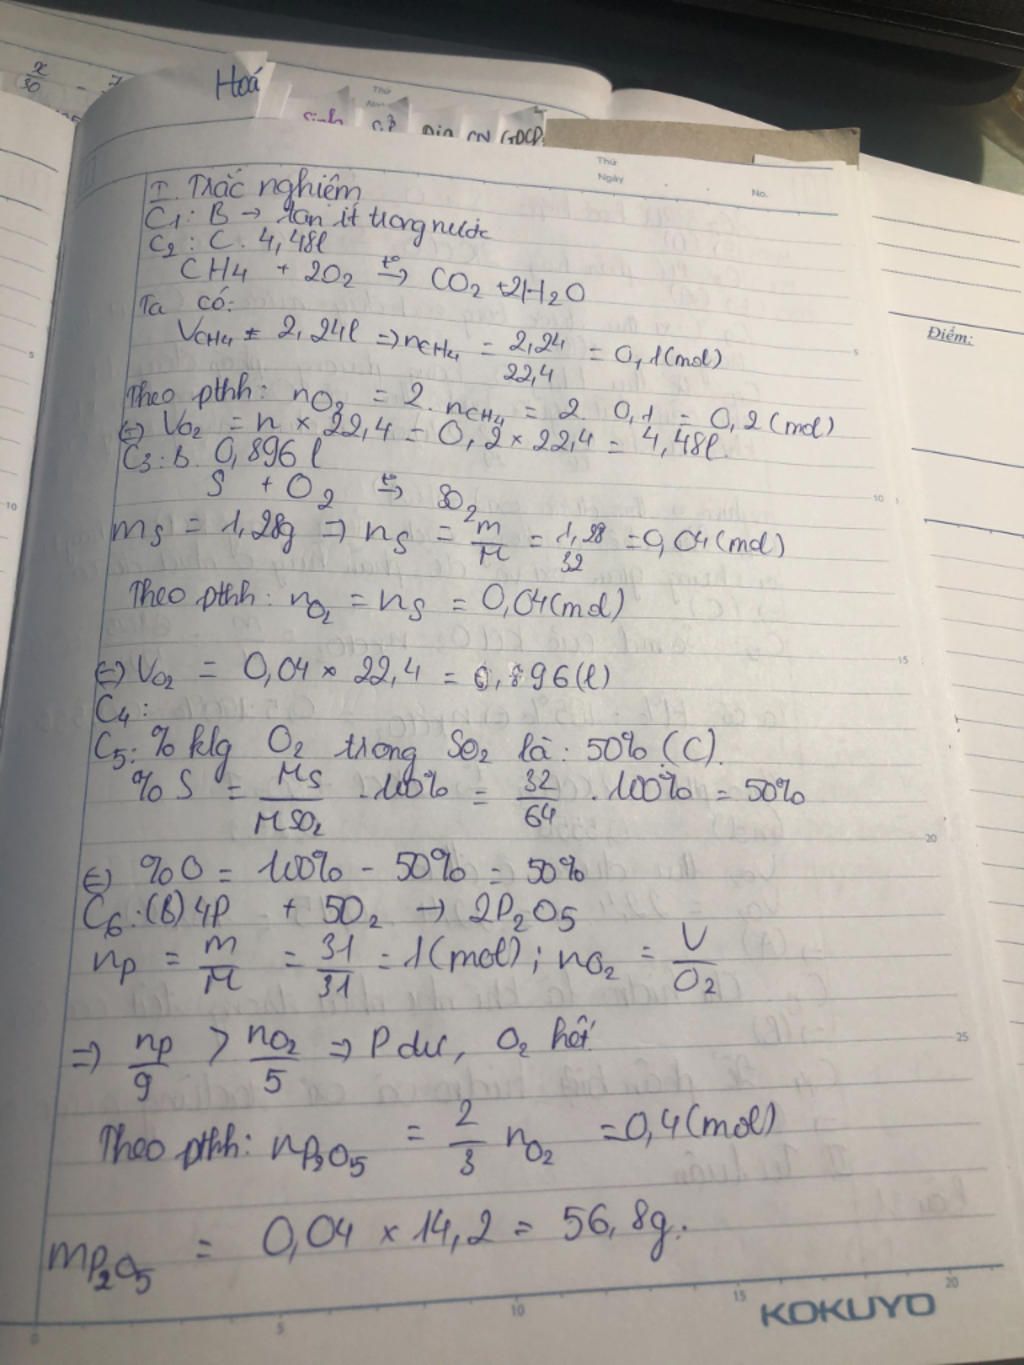 x/30 - 7
Hoá
Sinh
Địa CN GDCD
Thứ
Ngày
No.
Điểm:
I. Trắc nghiệm
C1: B → tan ít trong nước
C2: C. 4,48l
CH4 + 2O2 t°→ CO2 + 2H2O
Ta có:
VCH4 = 2,24l => nCH4 = 2,24/22,4 = 0,1(mol)
Theo pthh: nO2 = 2. nCH4 = 2. 0,1 = 0,2(mol)
(=) VO2 = n × 22,4 = 0,2 × 22,4 = 4,48l.
C3: B. 0,896l
S + O2 t°→ SO2
mS = 1,28g => nS = m/M = 1,28/32 = 0,04(mol)
Theo pthh: nO2 = nS = 0,04(mol)
(=) VO2 = 0,04 × 22,4 = 0,896(l)
C4:
C5: % klg O2 trong SO2 là: 50% (C).
% S = MS/MSO2 . 100% = 32/64 . 100% = 50%
(=) %O = 100% - 50% = 50%
C6: (B) 4P + 5O2 → 2P2O5
nP = m/M = 31/31 = 1(mol); nO2 = V/O2
=> nP/9 > nO2/5 => P dư, O2 hết
Theo pthh: nP2O5 = 2/3 nO2 = 0,4(mol)
mP2O5 = 0,04 × 14,2 = 56,8g.
5
10
15
20
25
0
5
10
15
20
KOKUYO